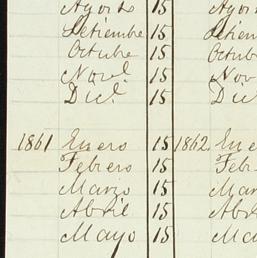 Agosto 15 Agost
Setiembre 15 Setiem
Octubre 15 Octub
Nov.e 15 Nov
Dic.e 15 Dic
1861 Enero 15 1862 Ene
Febrero 15 Febr
Marzo 15 Mar
Abril 15 Abr
Mayo 15 Ma